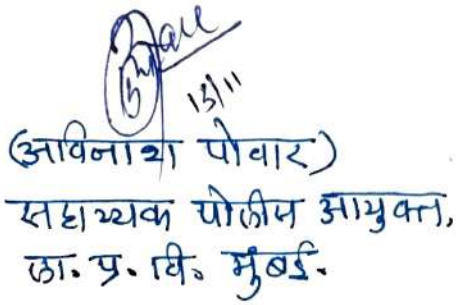 15/11
(अविनाश पोवार)
सहाय्यक पोलीस आयुक्त,
ला. प्र. वि. मुंबई.